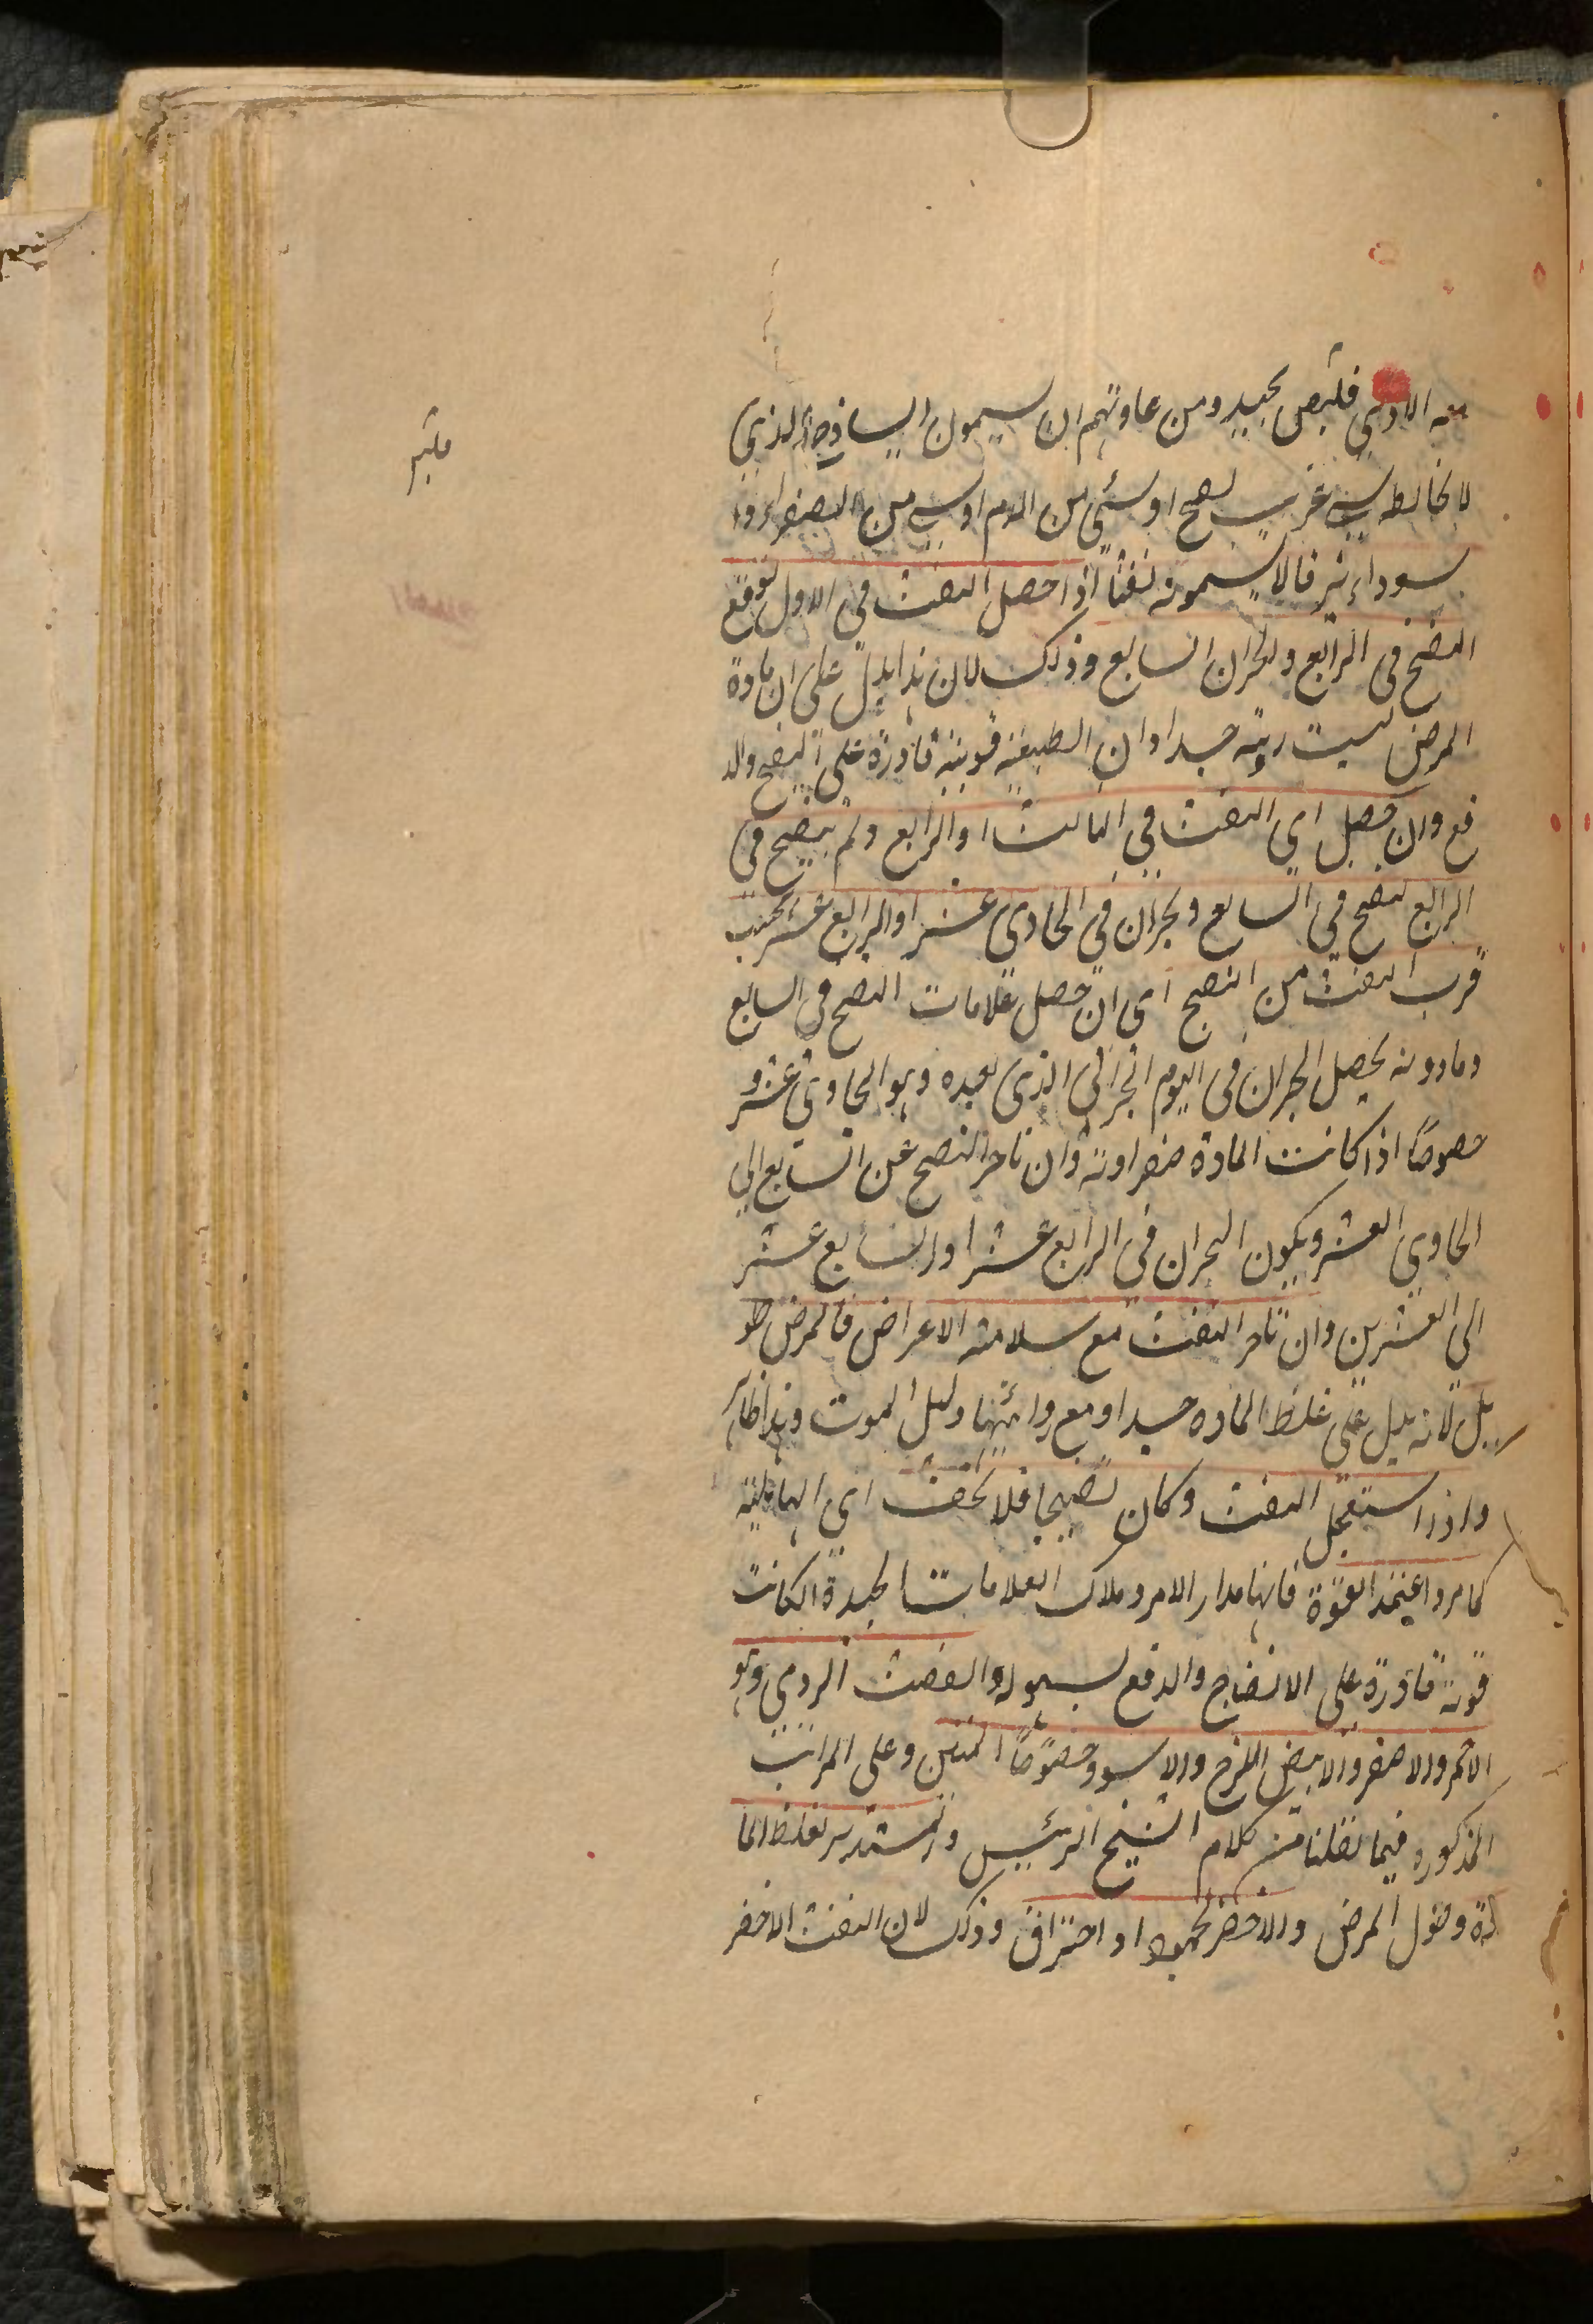 معه الاذي فليس بجيد ومن عاوتهم ان يسمون الساذج الذي
لا يخالطه شي غريب لصح او شئي من الدم او شي من الصفراء وا
سوداء بزقا لا يسمونه نفثا اذا حصل النفث في الاول توقع
النضج في الرابع والبحران السابع وذلك لان هذا يدل على ان مادة
المرض ليست ردية جدا وان الطبيعة قوية قادرة على النضج والد
فع وان حصل اي النفث في الثالث او الرابع ولم ينضج في
الرابع نضج في السابع وبحران في الحادي عشر او الرابع عشر بحسب
قرب النفث من النضج اي ان حصل علامات النضج في السابع
ومادونه يحصل البحران في اليوم البحراني الذي بعده وهو الحادي عشر و
خصوصًا اذا كانت المادة صفراوية وان تاخر النضج عن السابع الي
الحادي العشر ويكون البحران في الرابع عشر او السابع عشر
الي العشرين وان تاخر النفث مع سلامة الاعراض فالمرض طو
يل لانه يدل على غلظ المادة جدا ومع ردائتها دليل الموت وهذا ظاهر
واذا استعجل النفث وكان نضيجا فلا تخف اي الهائلية
كما مر واعتمد القوة فانها مدار الامر وملاك العلامات الجيدة ان كانت
قوية قادرة على الانضاج والدفع بسهولة والنفث الردي وهو
الاحمر والاصفر والابيض اللزج والاسود خصوصًا المنتن وعلى المراتب
المذكوره فيما نقلنا من كلام الشيخ الرئيس والمستدير لغلظ الما
دة وطول المرض والاخضر لجمود او احتراق وذلك لان النفث الاخضر